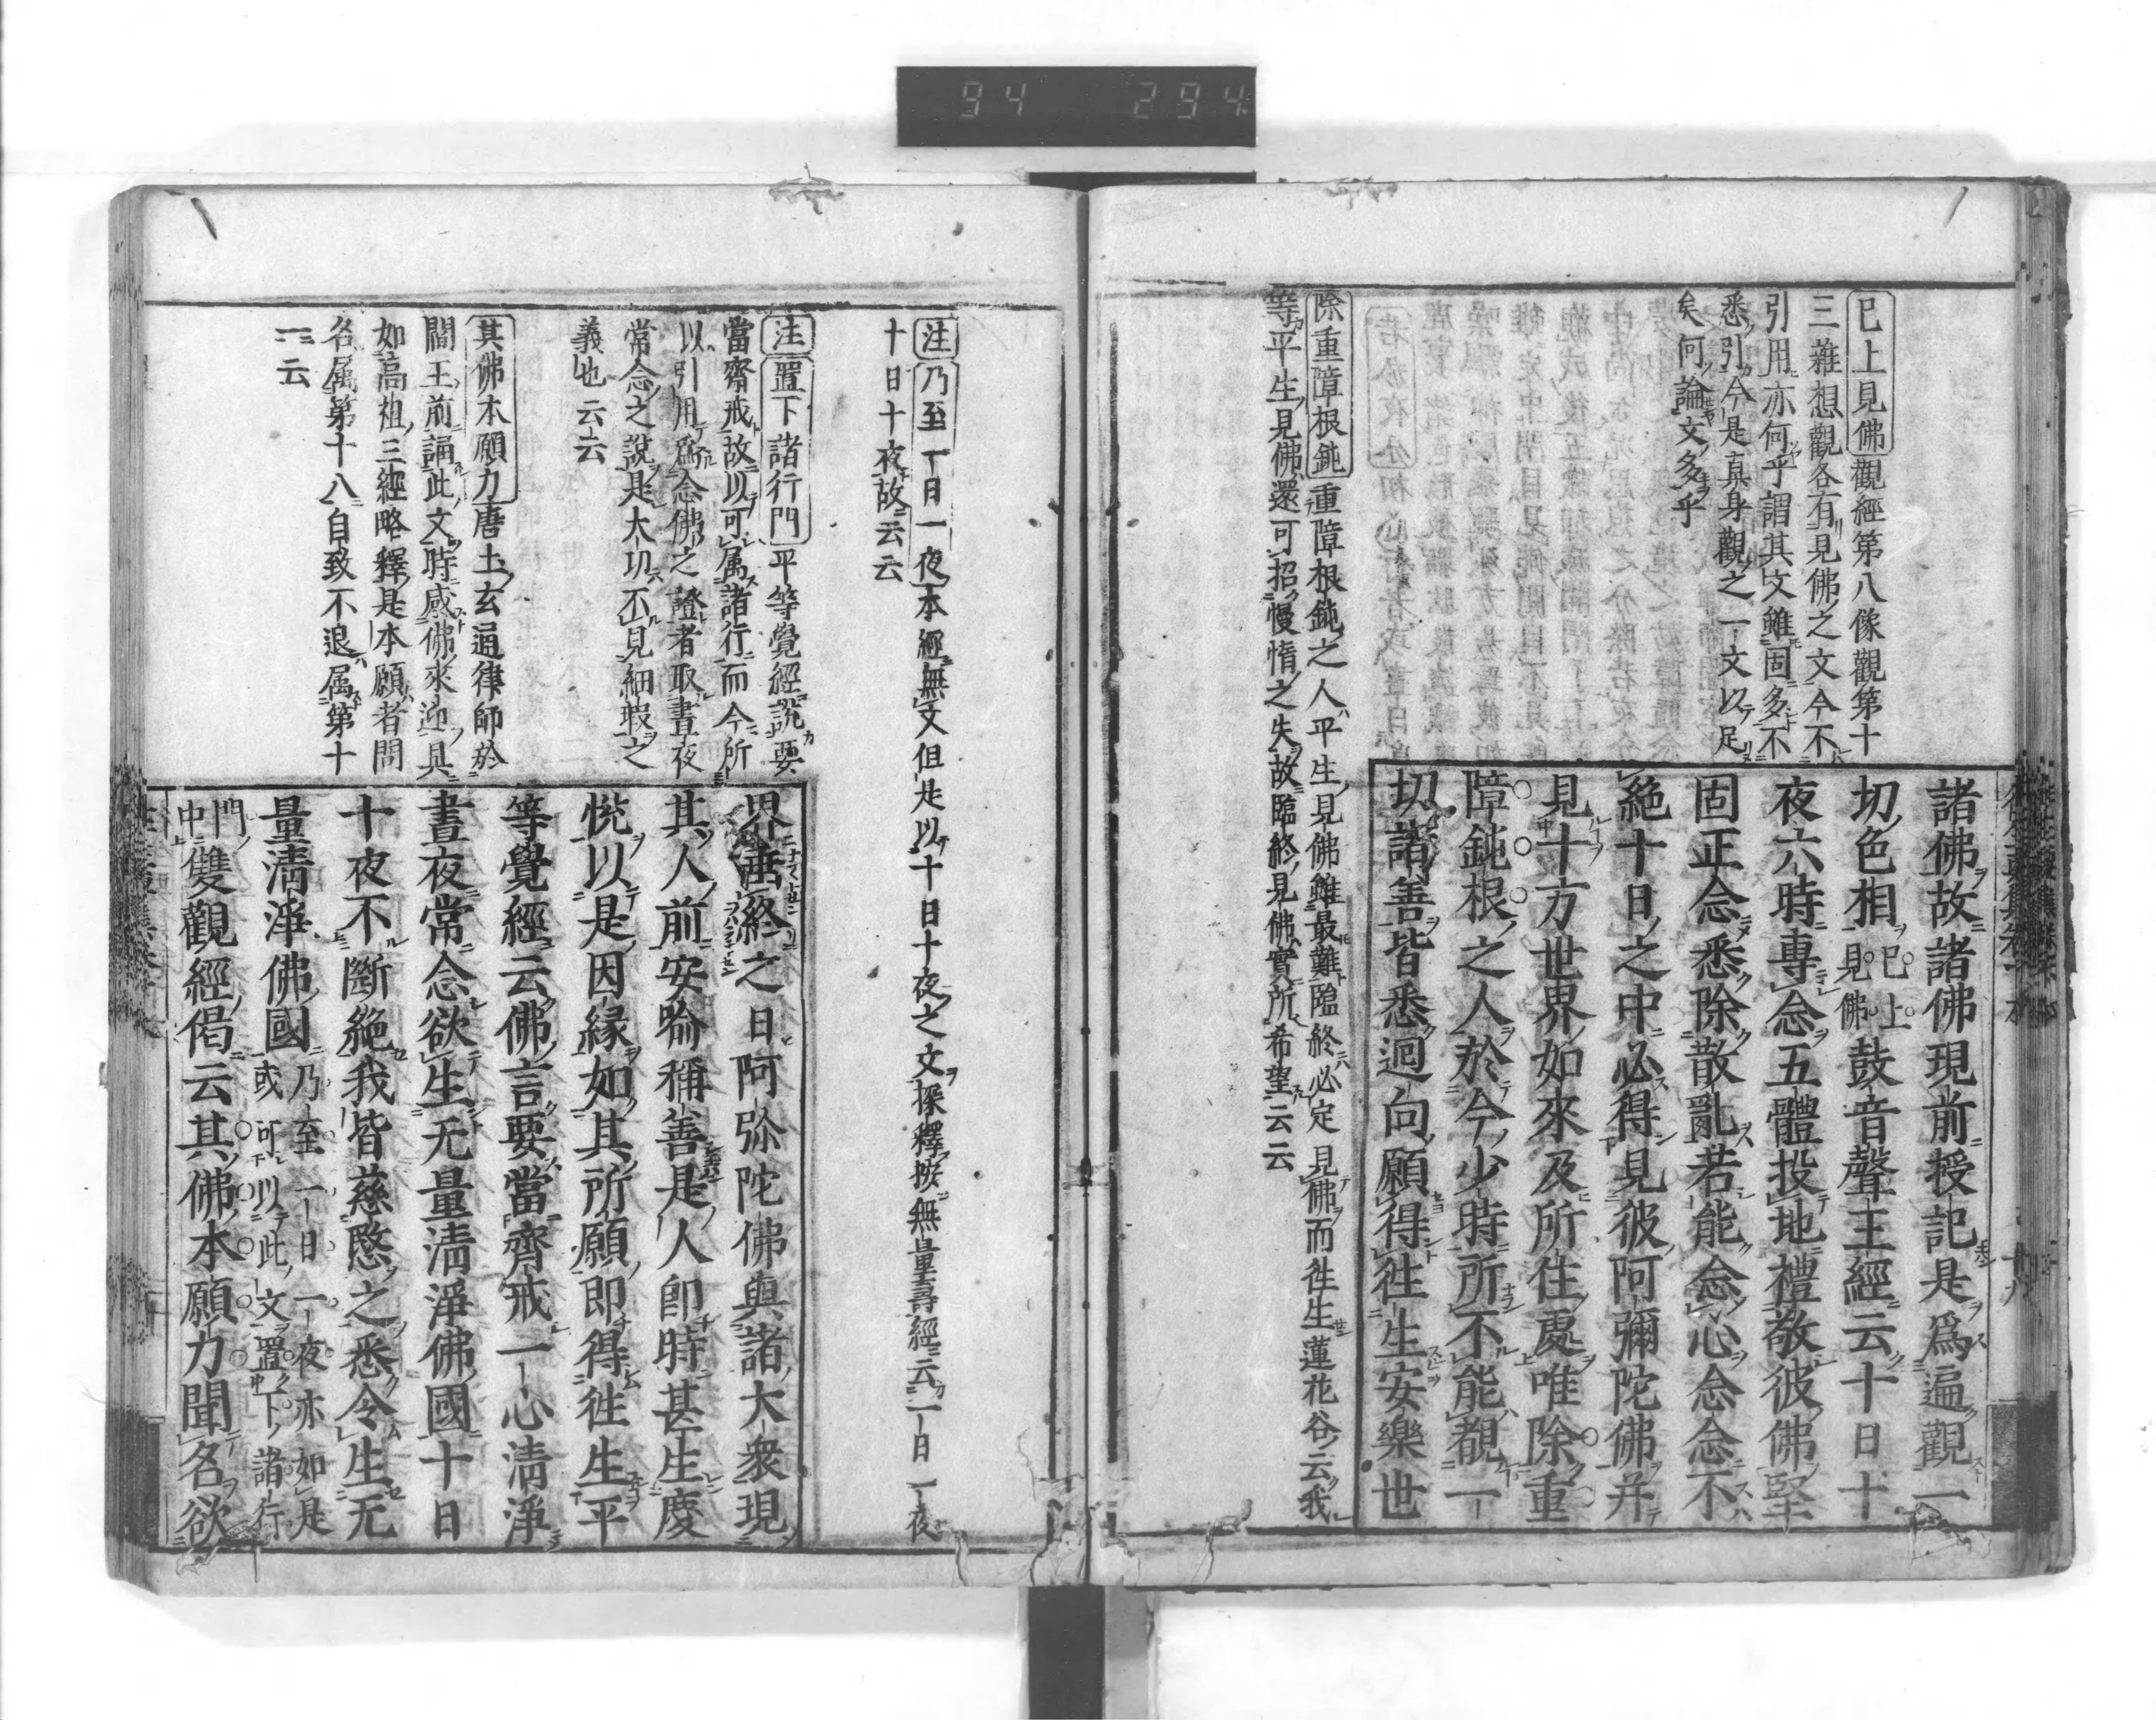 94 294
已上見佛觀經第八像觀第十
三雜想觀各有見佛之文今不
引用亦何乎謂其文雖固多不
悉引今是真身觀之一文以足
矣何論文多乎
諸佛故諸佛現前授記是爲遍觀一
切色相已上見佛鼓音聲王經云十日十
夜六時專念五體投地禮敬彼佛堅
固正念悉除散亂若能念心念念不
絶十日之中必得見彼阿彌陀佛并
見十方世界如來及所住處唯除重
障鈍根之人於今少時所不能覩一
切諸善皆悉迴向願得徃生安樂世
除重障根鈍重障根鈍之人平生見佛雖最難臨終必定見佛而徃生蓮花谷云我
等平生見佛還可招慢惰之失故臨終見佛實所希望云云
注乃至一日一夜本經無文但是以十日十夜之文探釋按無量壽經云一日一夜
十日十夜故云云
注置下諸行門平等覺經説要
當齋戒故以可属諸行而今所
以引用爲念佛之證者取晝夜
常念之說是大切不見細瑕之
義也云云
其佛本願力唐土玄通律師於
閻王前誦此文時感佛來迎具
如高祖三經略釋是本願者問
各属第十八自致不退属第十
一云云
界垂終之日阿弥陀佛與諸大衆現
其人前安喻稱善是人卽時甚生慶
悦以是因縁如其所願即得徃生平
等覺經云佛言要當齊戒一心清淨
晝夜常念欲生无量清淨佛國十日
十夜不斷絶我皆慈愍之悉令生无
量清淨佛國乃至一日一夜亦如是或可以此文置下諸行
門中雙觀經偈云其佛本願力聞名欲